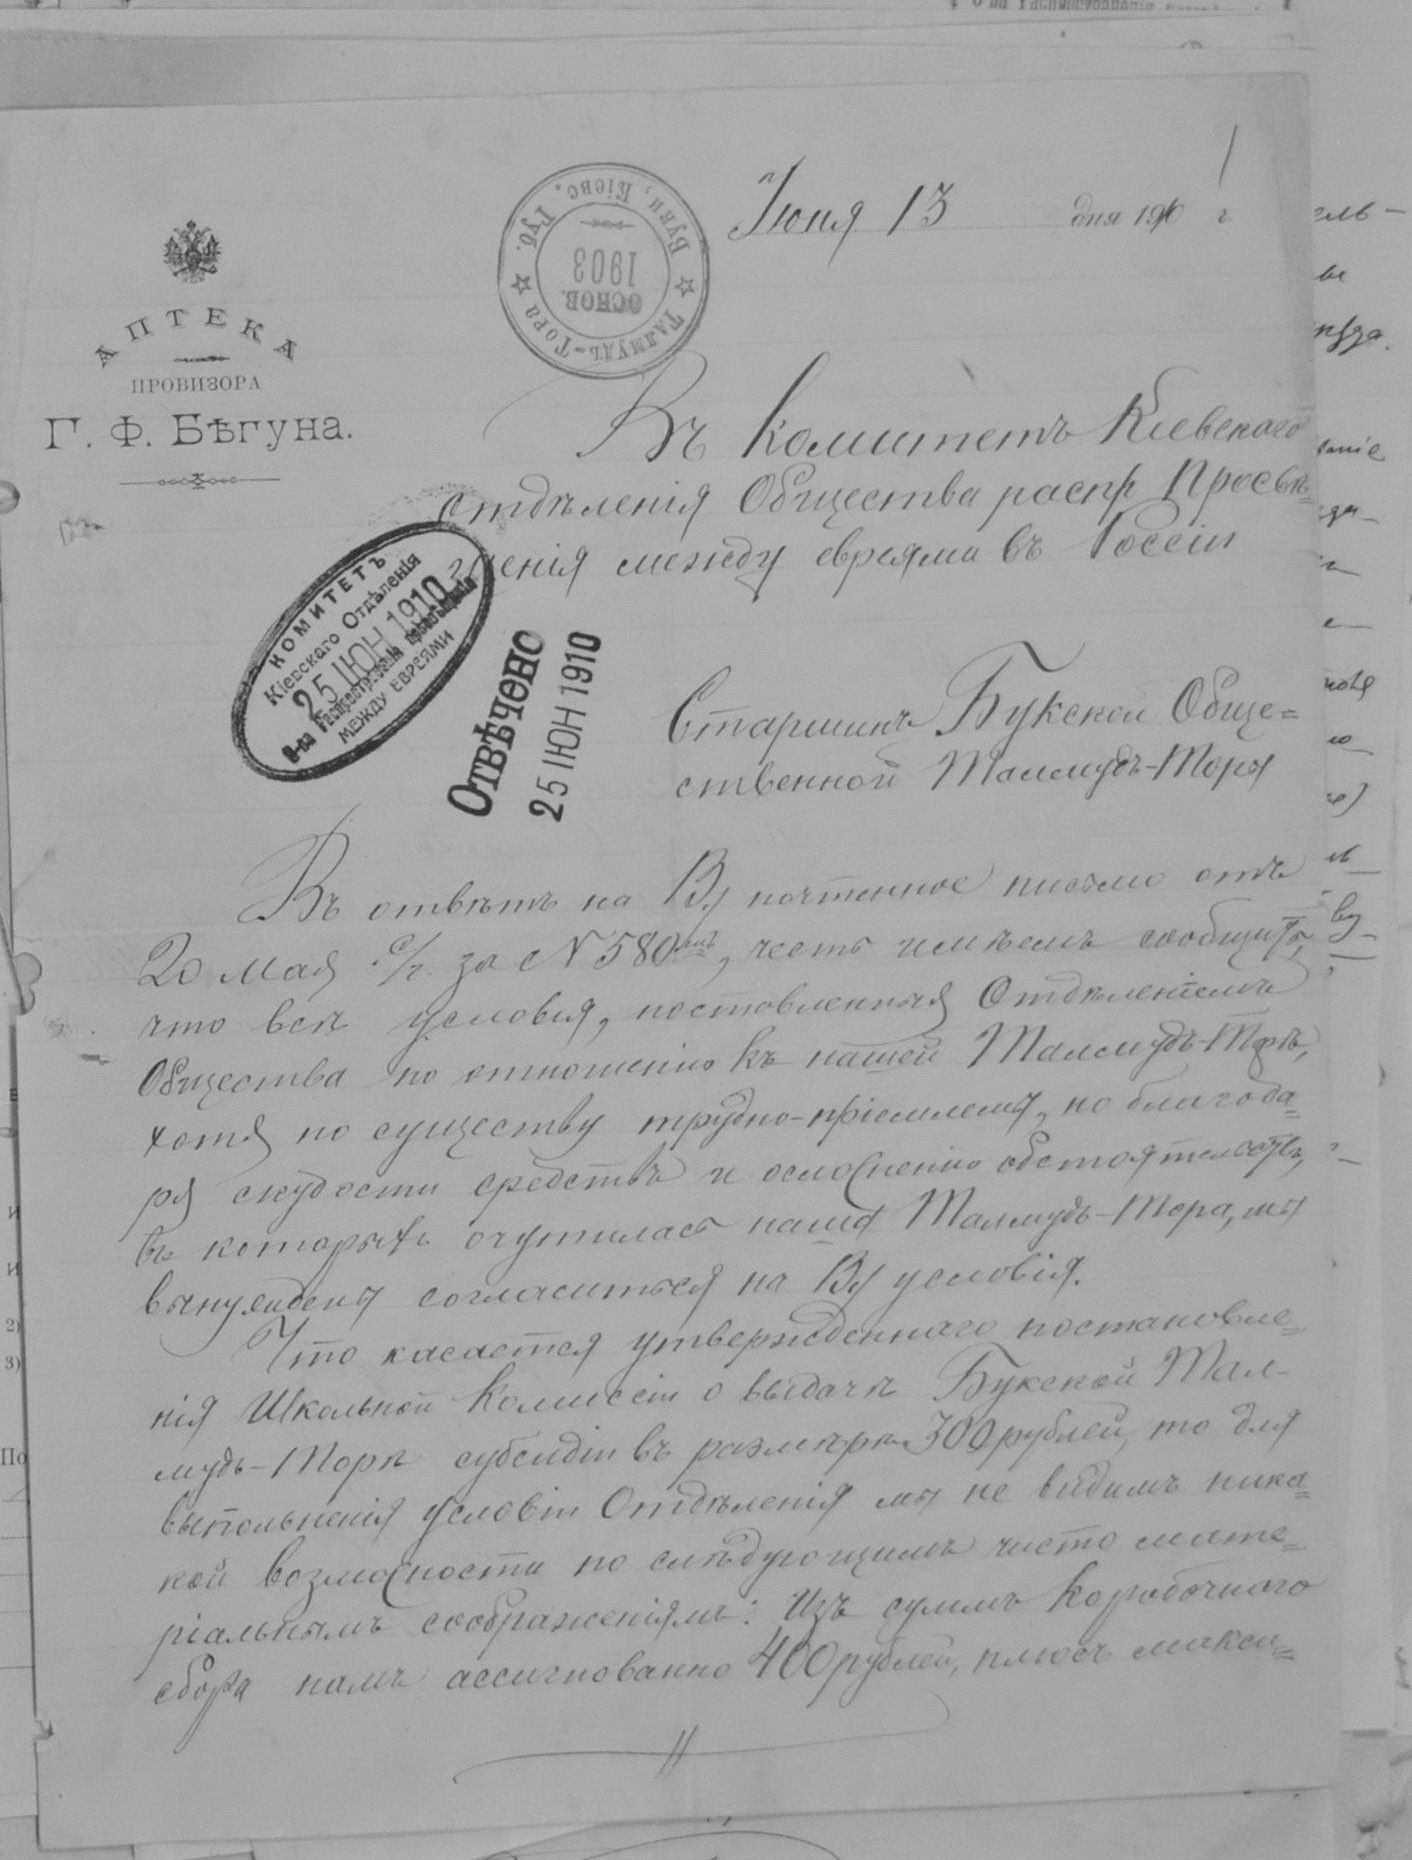 Іюня 13 дня 1910 г
Талмудъ-Тора ☆ Буки, Кіевс, Губ. ☆
основ.
1903
АПТЕКА
ПРОВИЗОРА
Г. Ф. Бѣгуна.
Въ Комитетъ Кіевскаго
отдѣленія Общества распр Просвѣ=
щенія между евреями въ Россіи
КОМИТЕТЪ
Кіевскаго Отдѣленія
25 ІЮН 1910
О-ва Распространенія просвѣщенія
МЕЖДУ ЕВРЕЯМИ
Отвѣчено
25 ІЮН 1910
Старшинъ Букской Обще=
ственной Талмудъ-Торы
Въ отвѣтъ на В/ почтенное письмо отъ
20 мая с/г. за N 580, честь имѣемъ сообщить,
что всѣ условія, поставленныя Отдѣленіемъ
Общества по отношенію къ нашей Талмудъ-Торѣ,
хотя по существу трудно-пріемлемы, но благода=
ря скудости средствъ и осложненію обстоятельствъ,
въ которыхъ очутилась наша Талмудъ-Тора, мы
вынуждены согласиться на В/ условія.
Что касается утвержденнаго постановле=
нія Школьной Комиссіи о выдачѣ Букской Тал-
мудъ-Торѣ субсидіи въ размѣрѣ 300 рублей, то для
выпольненія условіи Отдѣленія мы не видимъ ника=
кой возможности по слѣдующимъ чисто мате=
ріальнымъ соображеніямъ: Изъ суммъ Коробочнаго
сбора намъ ассигнованно 400 рублей, плюсъ макси=